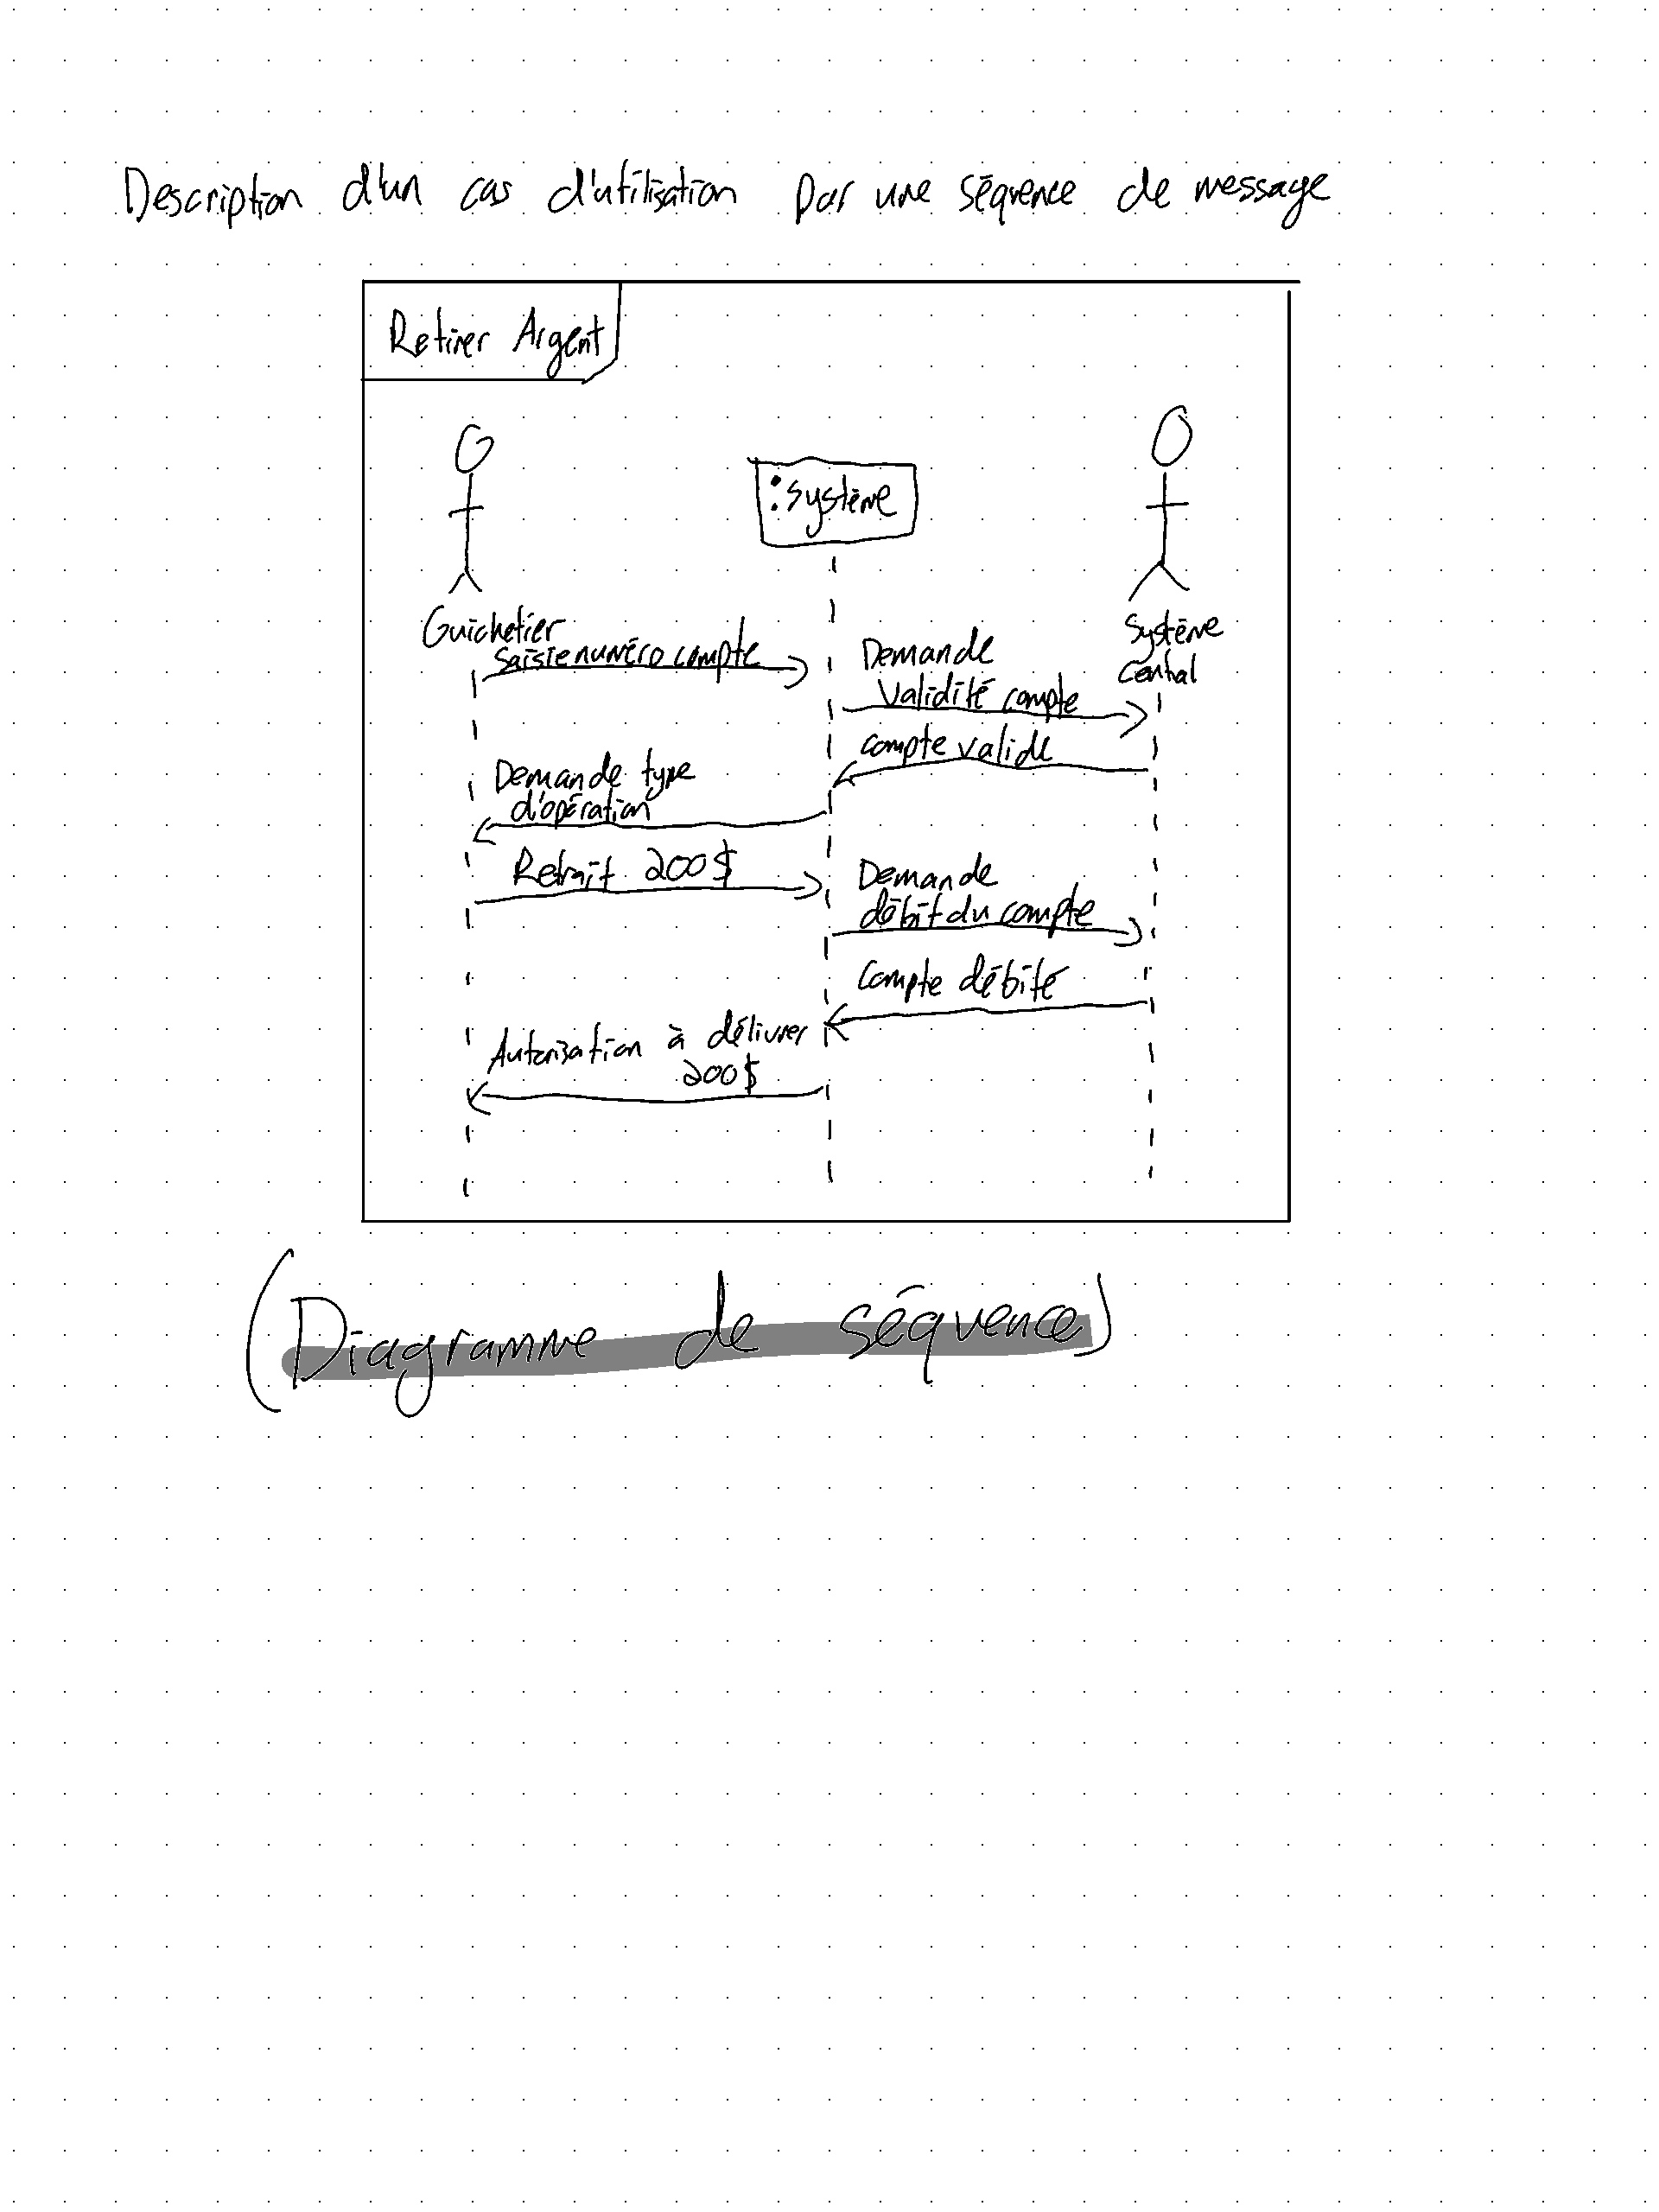 Description d'un cas d'utilisation par une séquence de message
Retirer Argent
:système
Guichetier
Système
central
saisie numéro compte
Demande
validité compte
compte valide
Demande type
d'opération
Retrait 200$
Demande
débit du compte
Compte débité
Autorisation à délivrer
200$
(Diagramme de séquence)